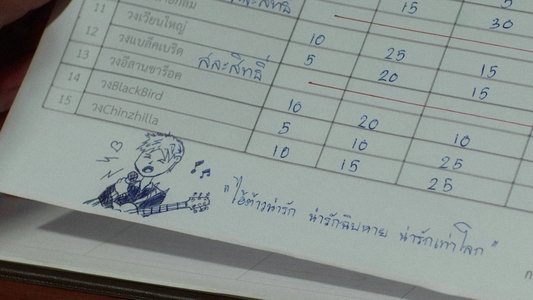 สละสิทธิ์ 15 5
30
10 25 15
11 วงเวียนใหญ่ 5 20 15
12 สละสิทธิ์
13 วงอีสานซาร็อค 10 20 10
14 วงBlackBird 5 10 25
15 วงChinzhilla 10 15 25
"ไอ้ต้าวน่ารัก น่ารักฉิบหาย น่ารักเท่าโลก"